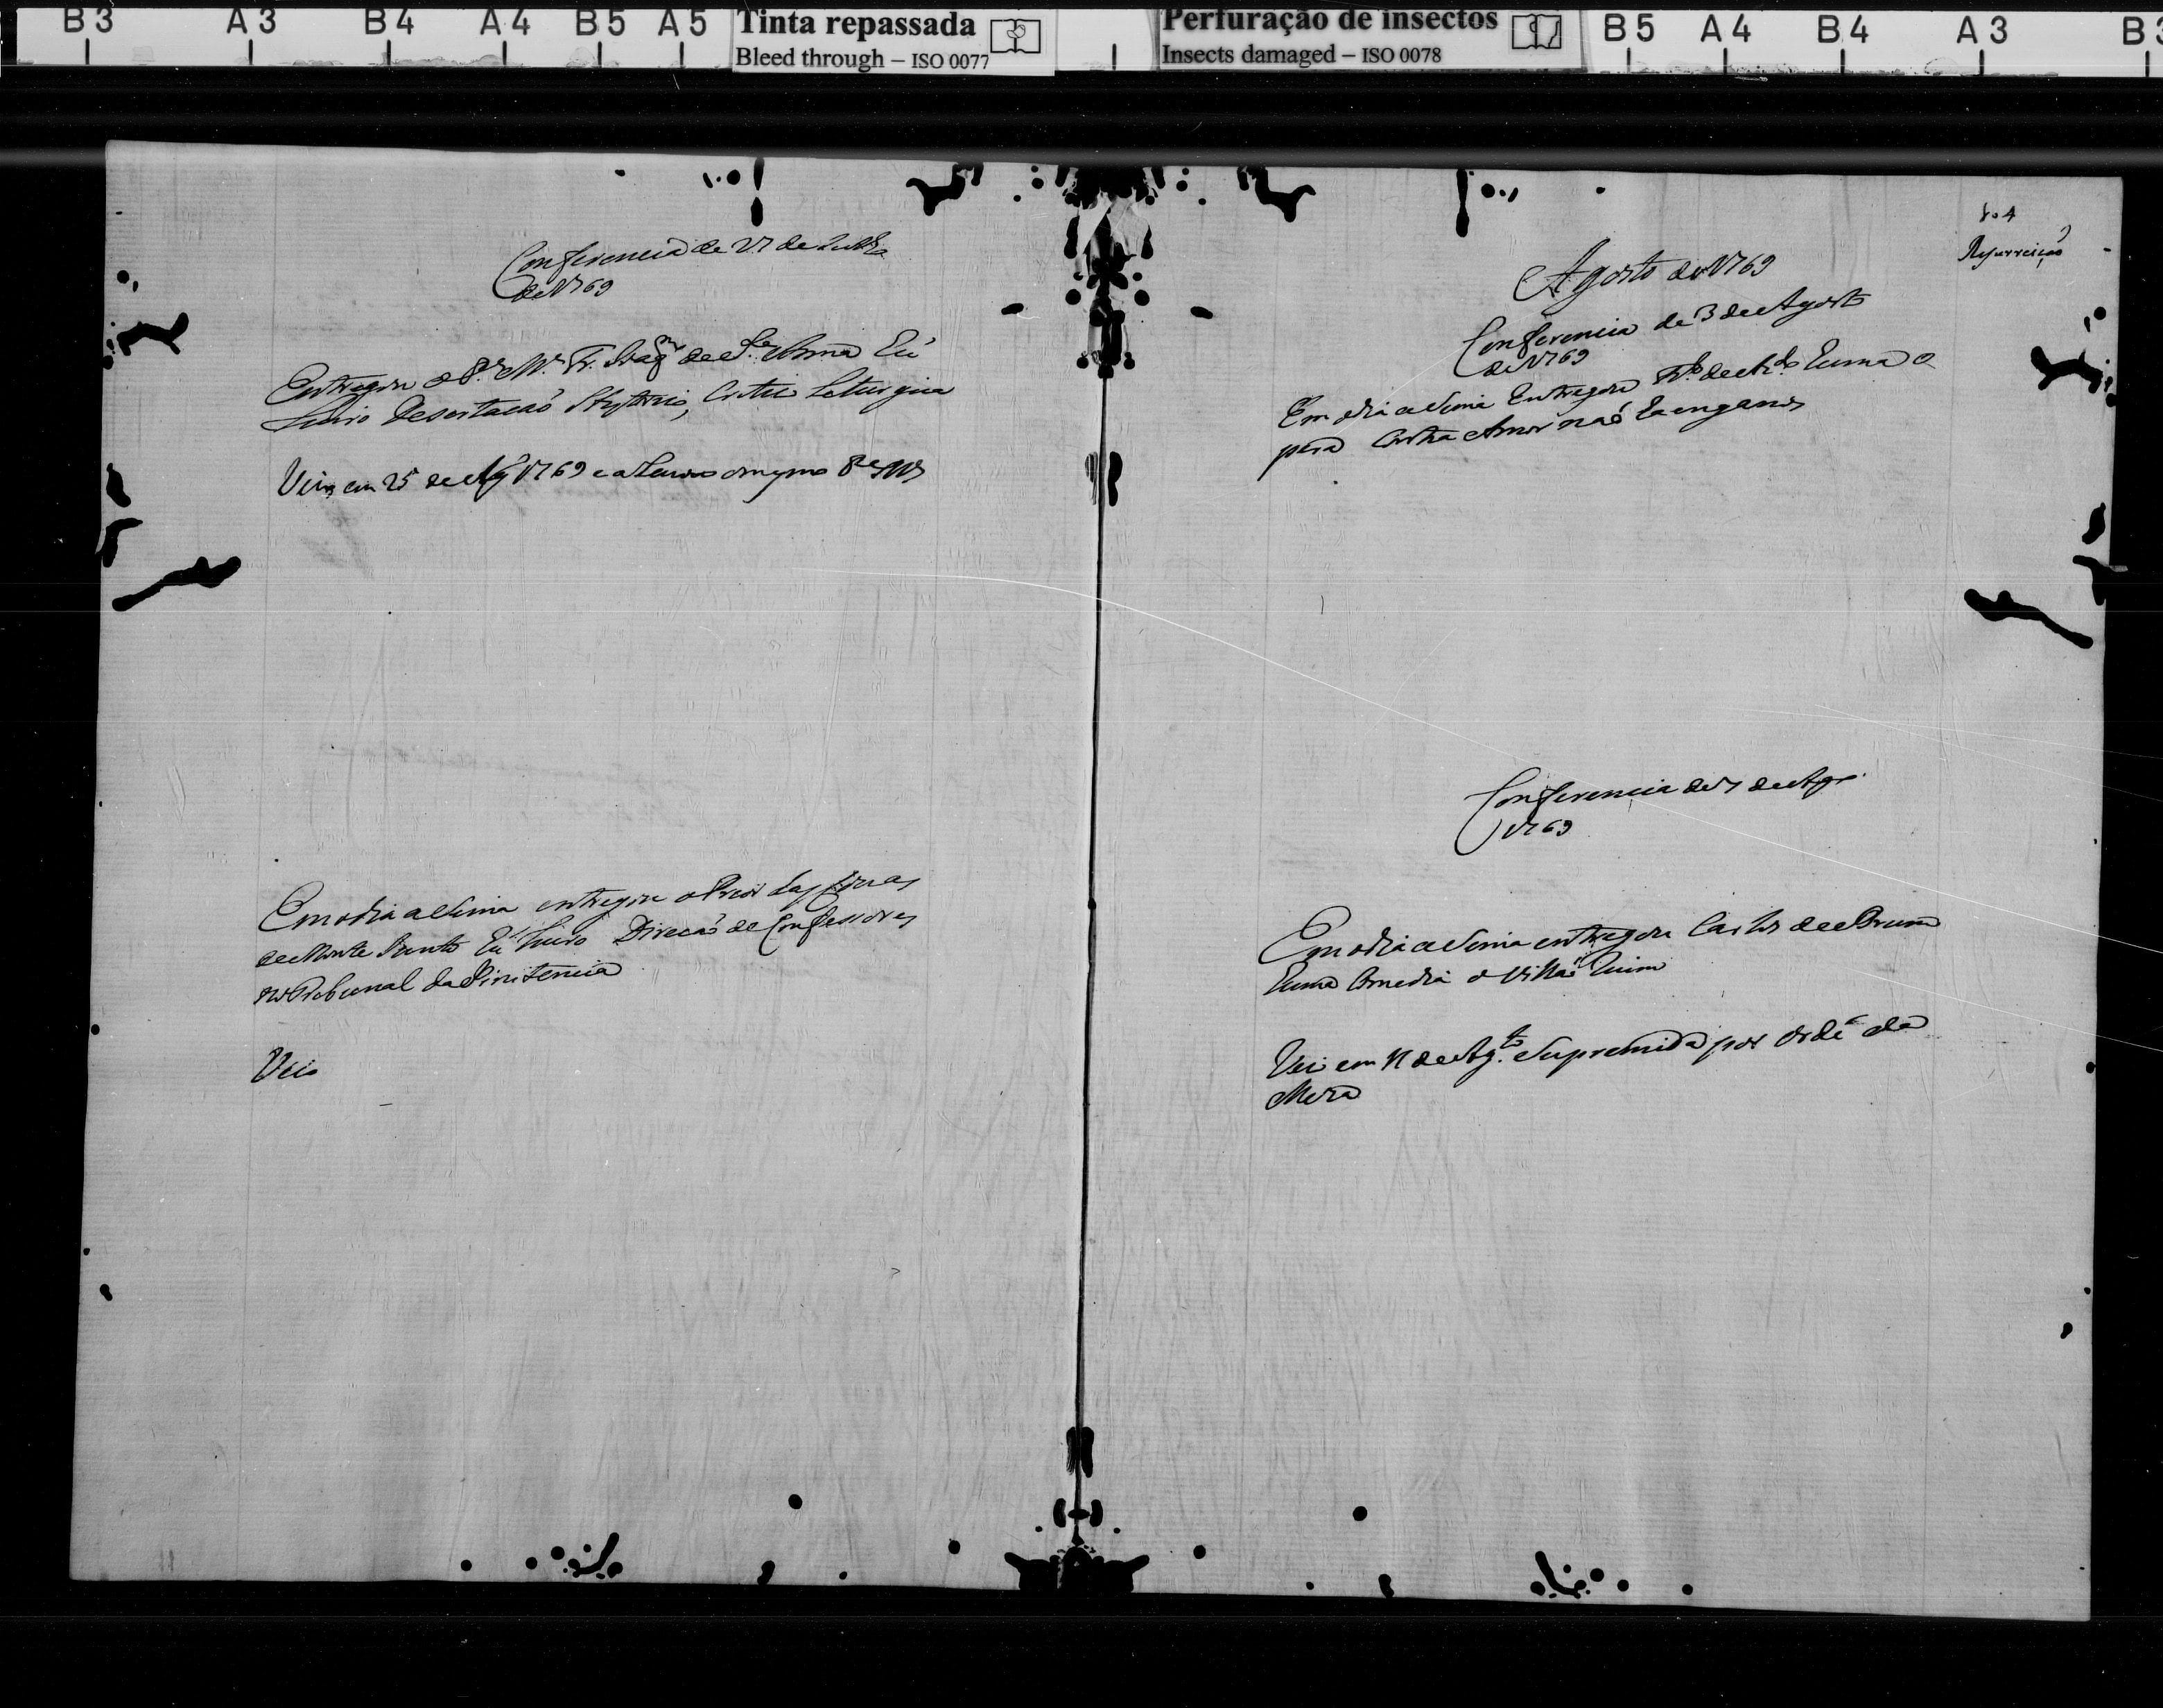 B3 A3 B4 A4 B5 A5
Tinta repassada
Bleed through – ISO 0077
Perfuração de insectos
Insects damaged – ISO 0078
B5 A4 B4 A3 B3
Conferencia de 27 de
de 1769
Entregou o P.e M.e Fr. de S.ta Anna hū
Livro Desertacaõ Critico Liturgica
Veio em 25 de Ag 1769 e a Levou o mesmo P.e M.e
Em o dia asima entregou o Prior das
de Monte Junto hū Livro Direcaõ de Confessores
no Tribunal da Penitencia
Veio
104
Resurreiçaõ
Agosto de 1769
Conferencia de 3 de Agosto
de 1769
Em o dia asima Entregou huma o
pera contra Amor naõ ha enganos
Conferencia de 7 de Ag.
1769
Em o dia asima entregou Carlos de Bruma
huma Comedia o Villaõ Ruim
Vei em 11 de Ag.to Supremida por ordē da
Meza